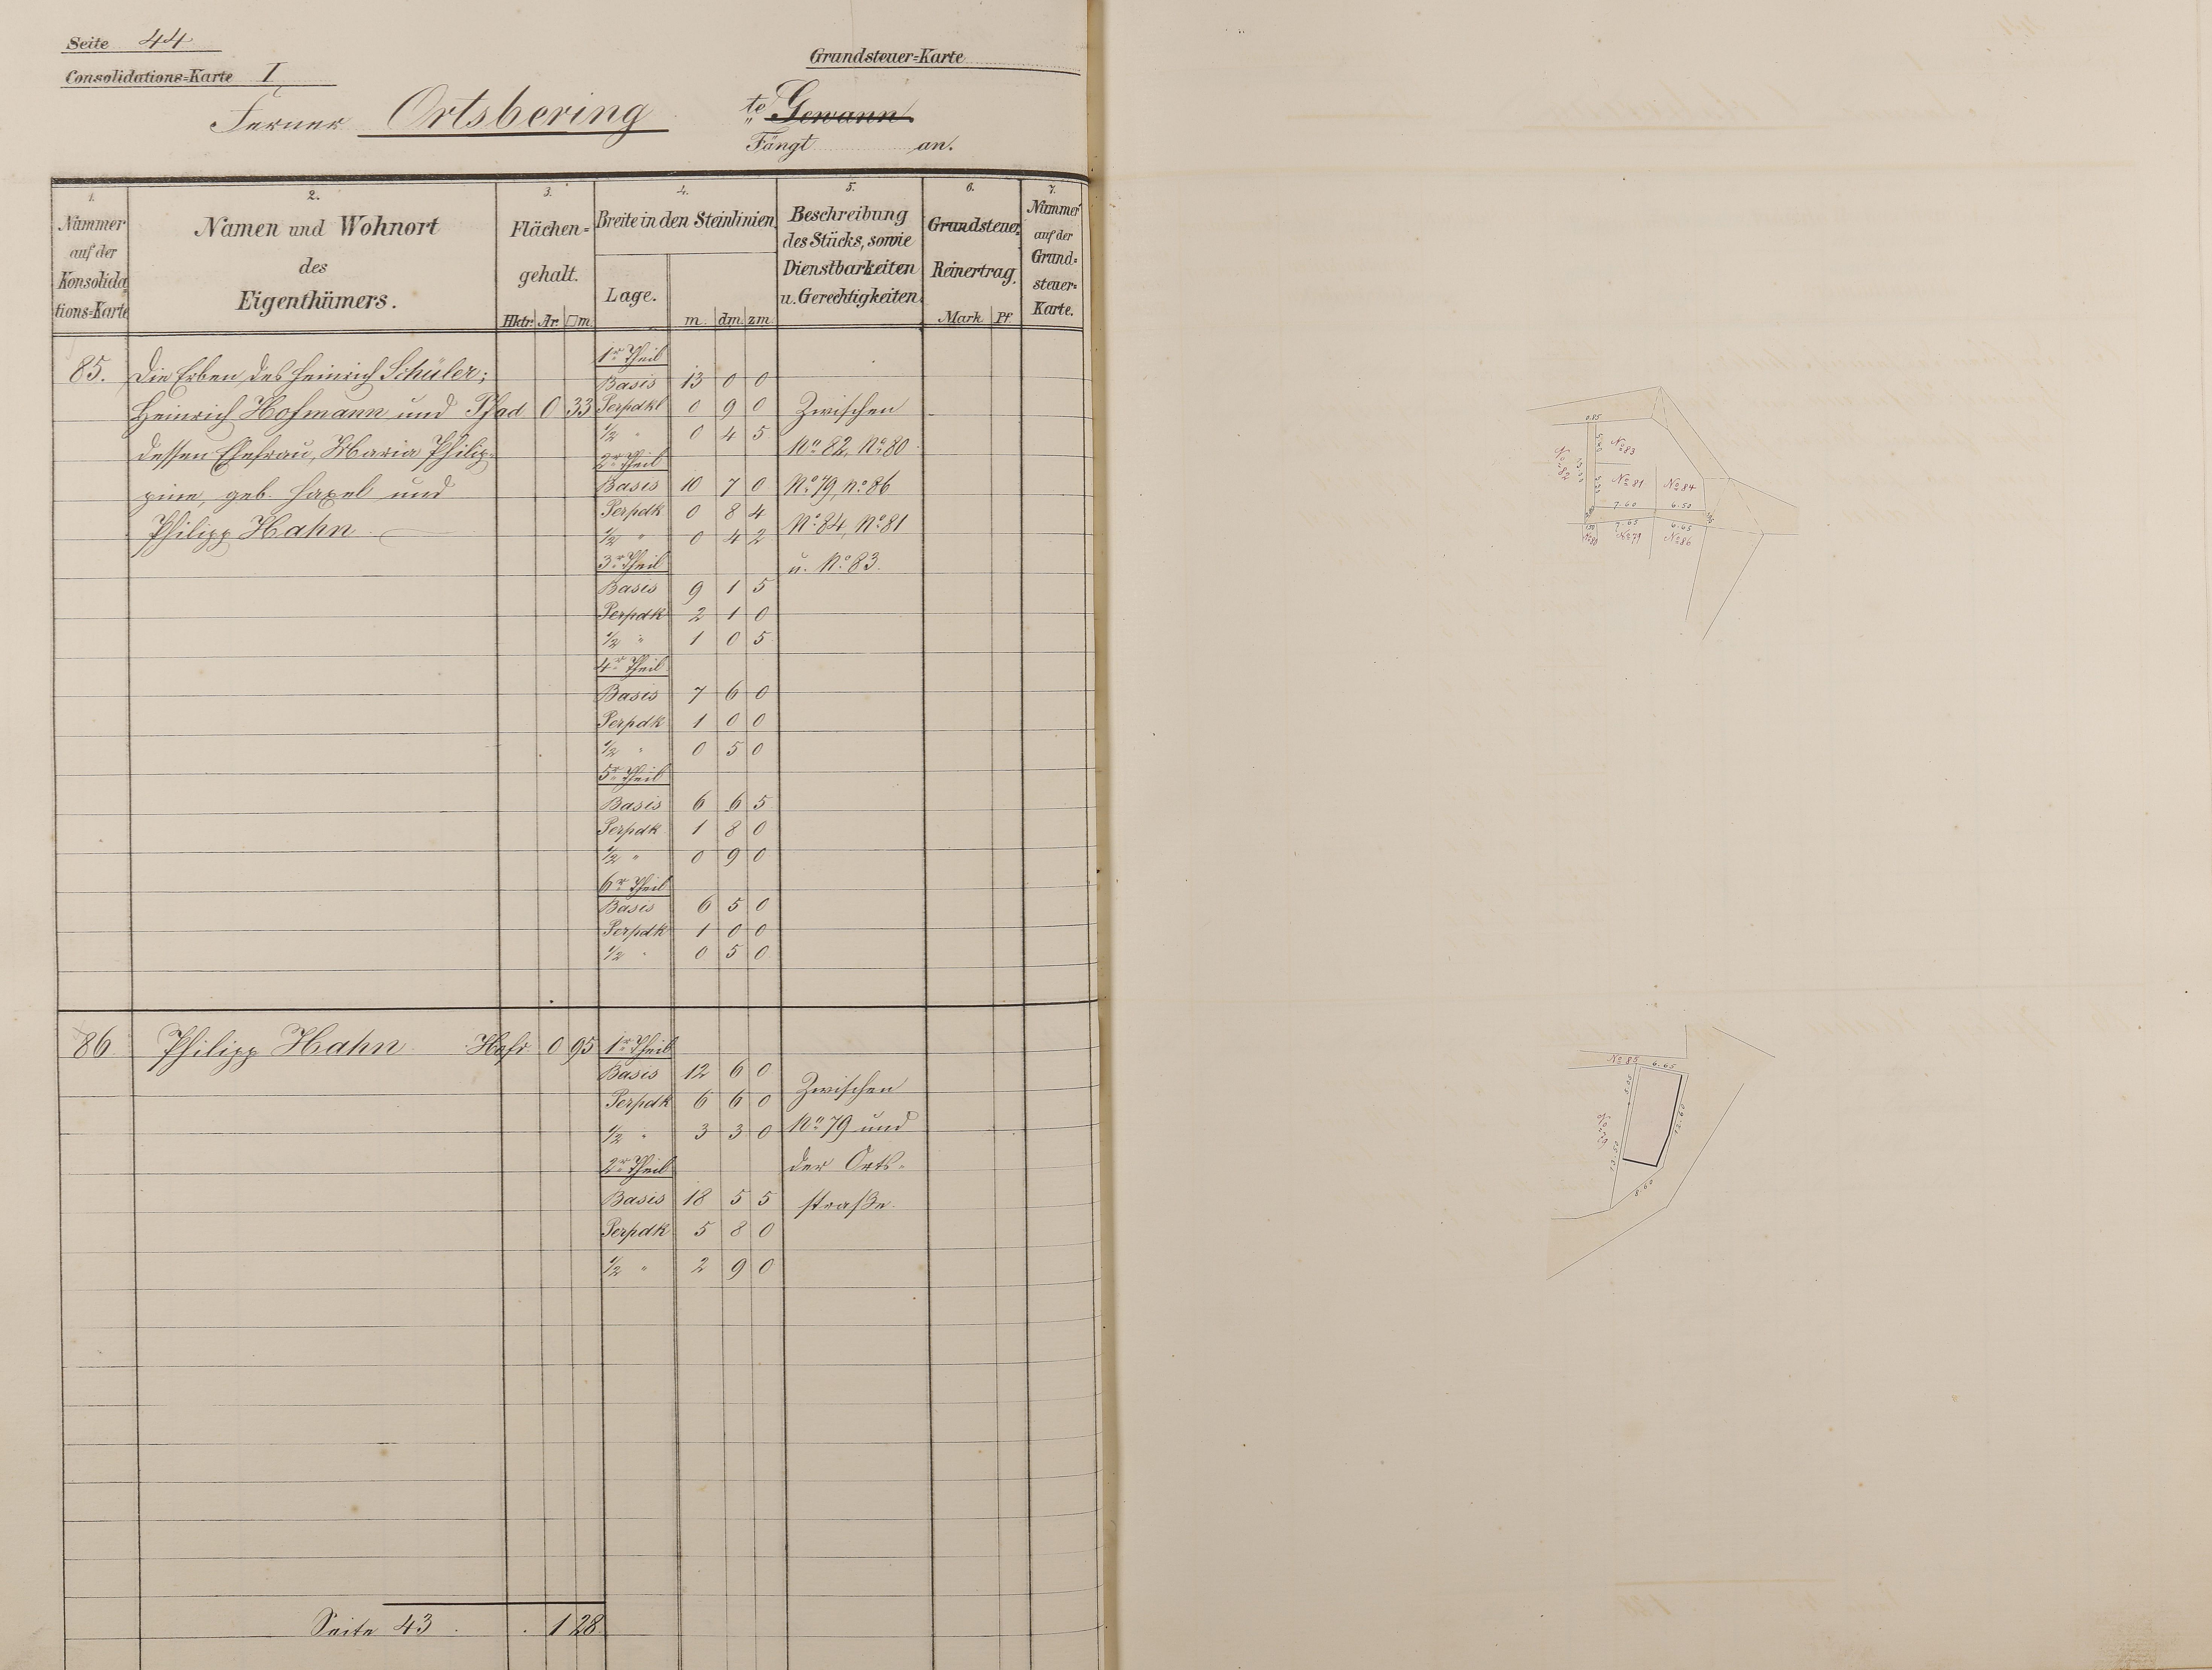 Seite 44
Consolidations=Karte I
Grundsteuer=Karte
Ferner Ortsbering te Gewann
Fängt an.
1. 2. 3. 4. 5. 6. 7.
Nummer auf der Konsolidations=Karte
Namen und Wohnort des Eigenthümers.
Flächen=gehalt.
Hktr. Ar. □m.
Breite in den Steinlinien
Lage. m. dm. zm.
Beschreibung des Stücks, sowie Dienstbarkeiten u. Gerechtigkeiten.
Grundsteuer=Reinertrag.
Mark Pf.
Nummer auf der Grund=steuer=Karte.
85. Die Erben des Heinrich Schüler;
Heinrich Hofmann und Pfad 0 33
dessen Ehefrau, Maria Philip=
pine, geb. Haxel und
Philipp Hahn
1r Theil
Basis 13 0 0
Perpdkl 0 9 0
1/2 " 0 4 5
2r Theil
Basis 10 7 0
Perpdk 0 8 4
1/2 " 0 4 2
3r Theil
Basis 9 1 5
Perpdk 2 1 0
1/2 " 1 0 5
4r Theil
Basis 7 6 0
Perpdk 1 0 0
1/2 " 0 5 0
5r Theil
Basis 6 6 5
Perpdk 1 8 0
1/2 " 0 9 0
6r Theil
Basis 6 5 0
Perpdk 1 0 0
1/2 " 0 5 0
Zwischen
No 82, No 80
No 79, No 86
No 84, No 81
u. No 83.
86 Philipp Hahn Hofr. 0 95
1r Theil
Basis 12 6 0
Perpdk 6 6 0
1/2 " 3 3 0
2r Theil
Basis 18 5 5
Perpdk 5 8 0
1/2 " 2 9 0
Zwischen
No 79 und
der Orts=
straße.
Seite 43 . . 1 28
0.85
No 83
No 82
No 81
No 84
7.60
6.50
7.65
6.65
No 80
No 79
No 86
No 85
6.65
5.05
12.60
No 79
13.50
8.60